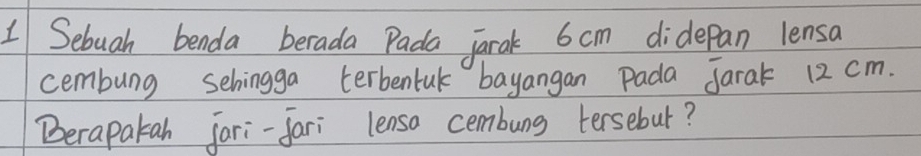 1 Sebuah benda berada Pada jarak 6 cm didepan lensa
cembung sehingga terbentuk bayangan pada jarak 12 cm.
Berapakah jari-jari lensa cembung tersebut?